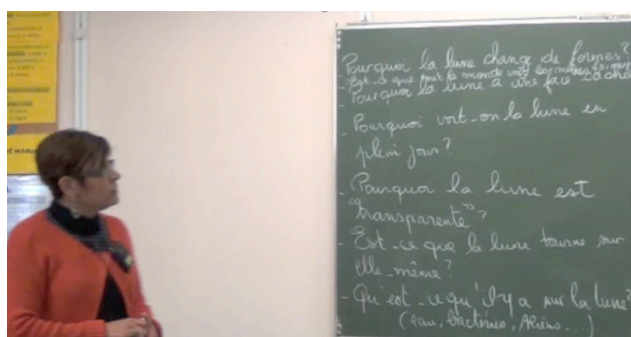 Pourquoi la lune change de formes ?
- Est-ce que tout le monde voit les mêmes
- Pourquoi la lune a une face
- Pourquoi voit-on la lune en
plein jour ?
- Pourquoi la lune est
"transparente" ?
- Est-ce que la lune tourne sur
elle-même ?
- Qu'est-ce qu'il y a sur la lune ?
(eau, bactéries, Aliens...)